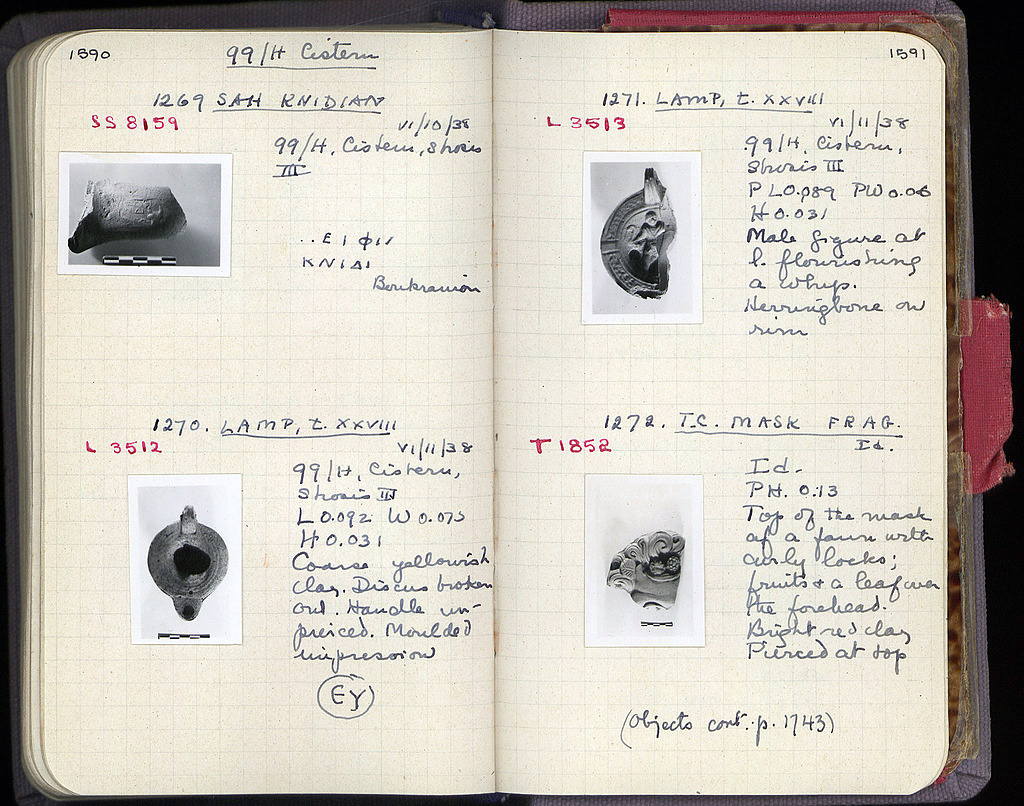 1590
99/H Cistern
1269 SAH KNIDIAN
SS 8159
VI/10/38
99/H, Cistern, Strosis
III
..ΕΙΦΙ
ΚΝΙΔΙ
Boukranion
1270. LAMP, t. XXVIII
L 3512
VI/11/38
99/H, Cistern,
Strosis III
L 0.092 W 0.075
H 0.031
Coarse yellowish
clay. Discus broken
out. Handle un-
pierced. Moulded
impression
1591
1271. LAMP, t. XXVIII
L 3513
VI/11/38
99/H, Cistern,
Strosis III
P L 0.089 PW 0.06
H 0.031
Male figure at
l. flourishing
a whip.
Herringbone on
rim
1272. T.C. MASK FRAG.
T 1852
Id.
Id.
PH. 0.13
Top of the mask
of a faun with
curly locks;
fruits & a leaf over
the forehead.
Bright red clay
Pierced at top
(Objects cont. p. 1743)